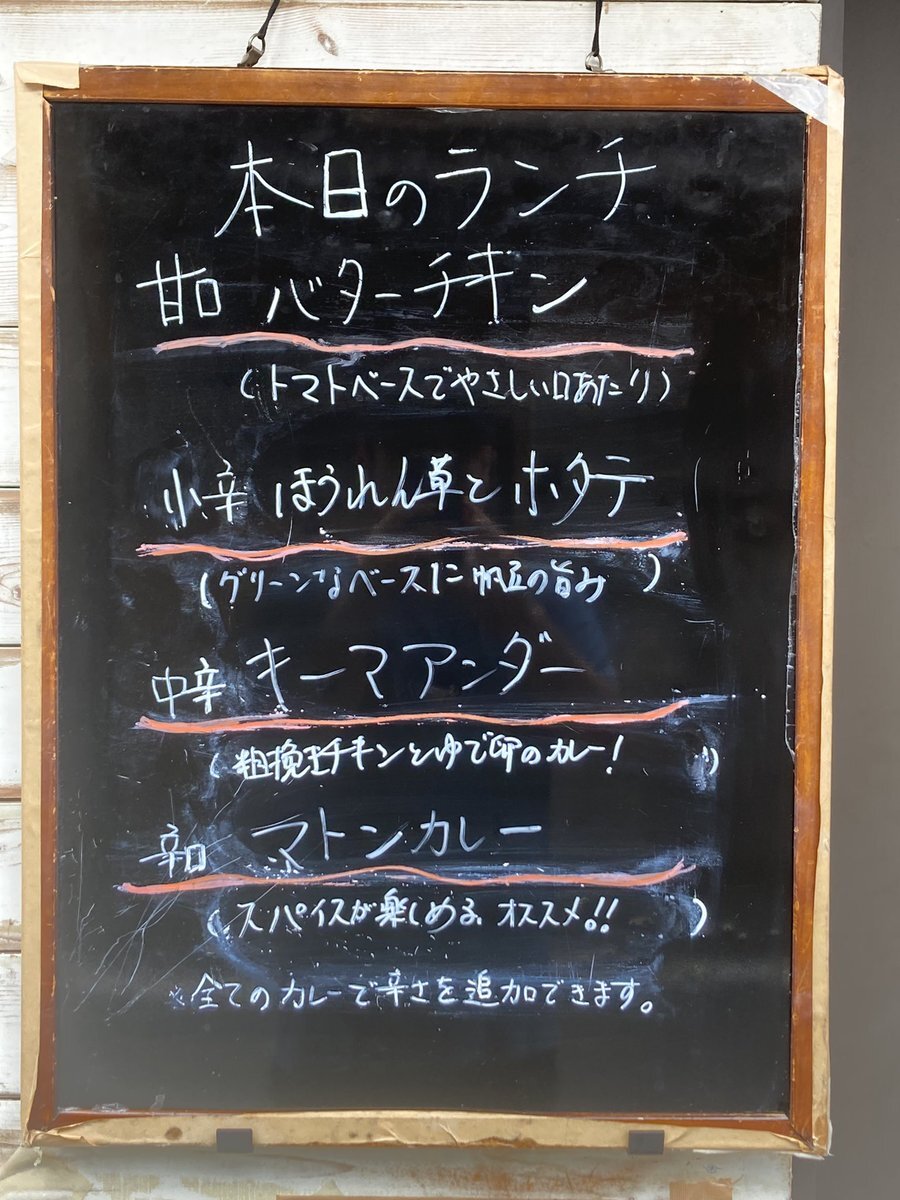 本日のランチ
甘口 バターチキン
(トマトベースでやさしい口あたり)
小辛 ほうれん草とホタテ
(グリーンなベースに帆立の旨み)
中辛 キーマアンダー
(粗挽きチキンとゆで卵のカレー!)
辛口 マトンカレー
(スパイスが楽しめる、オススメ!!)
※全てのカレーで辛さを追加できます。